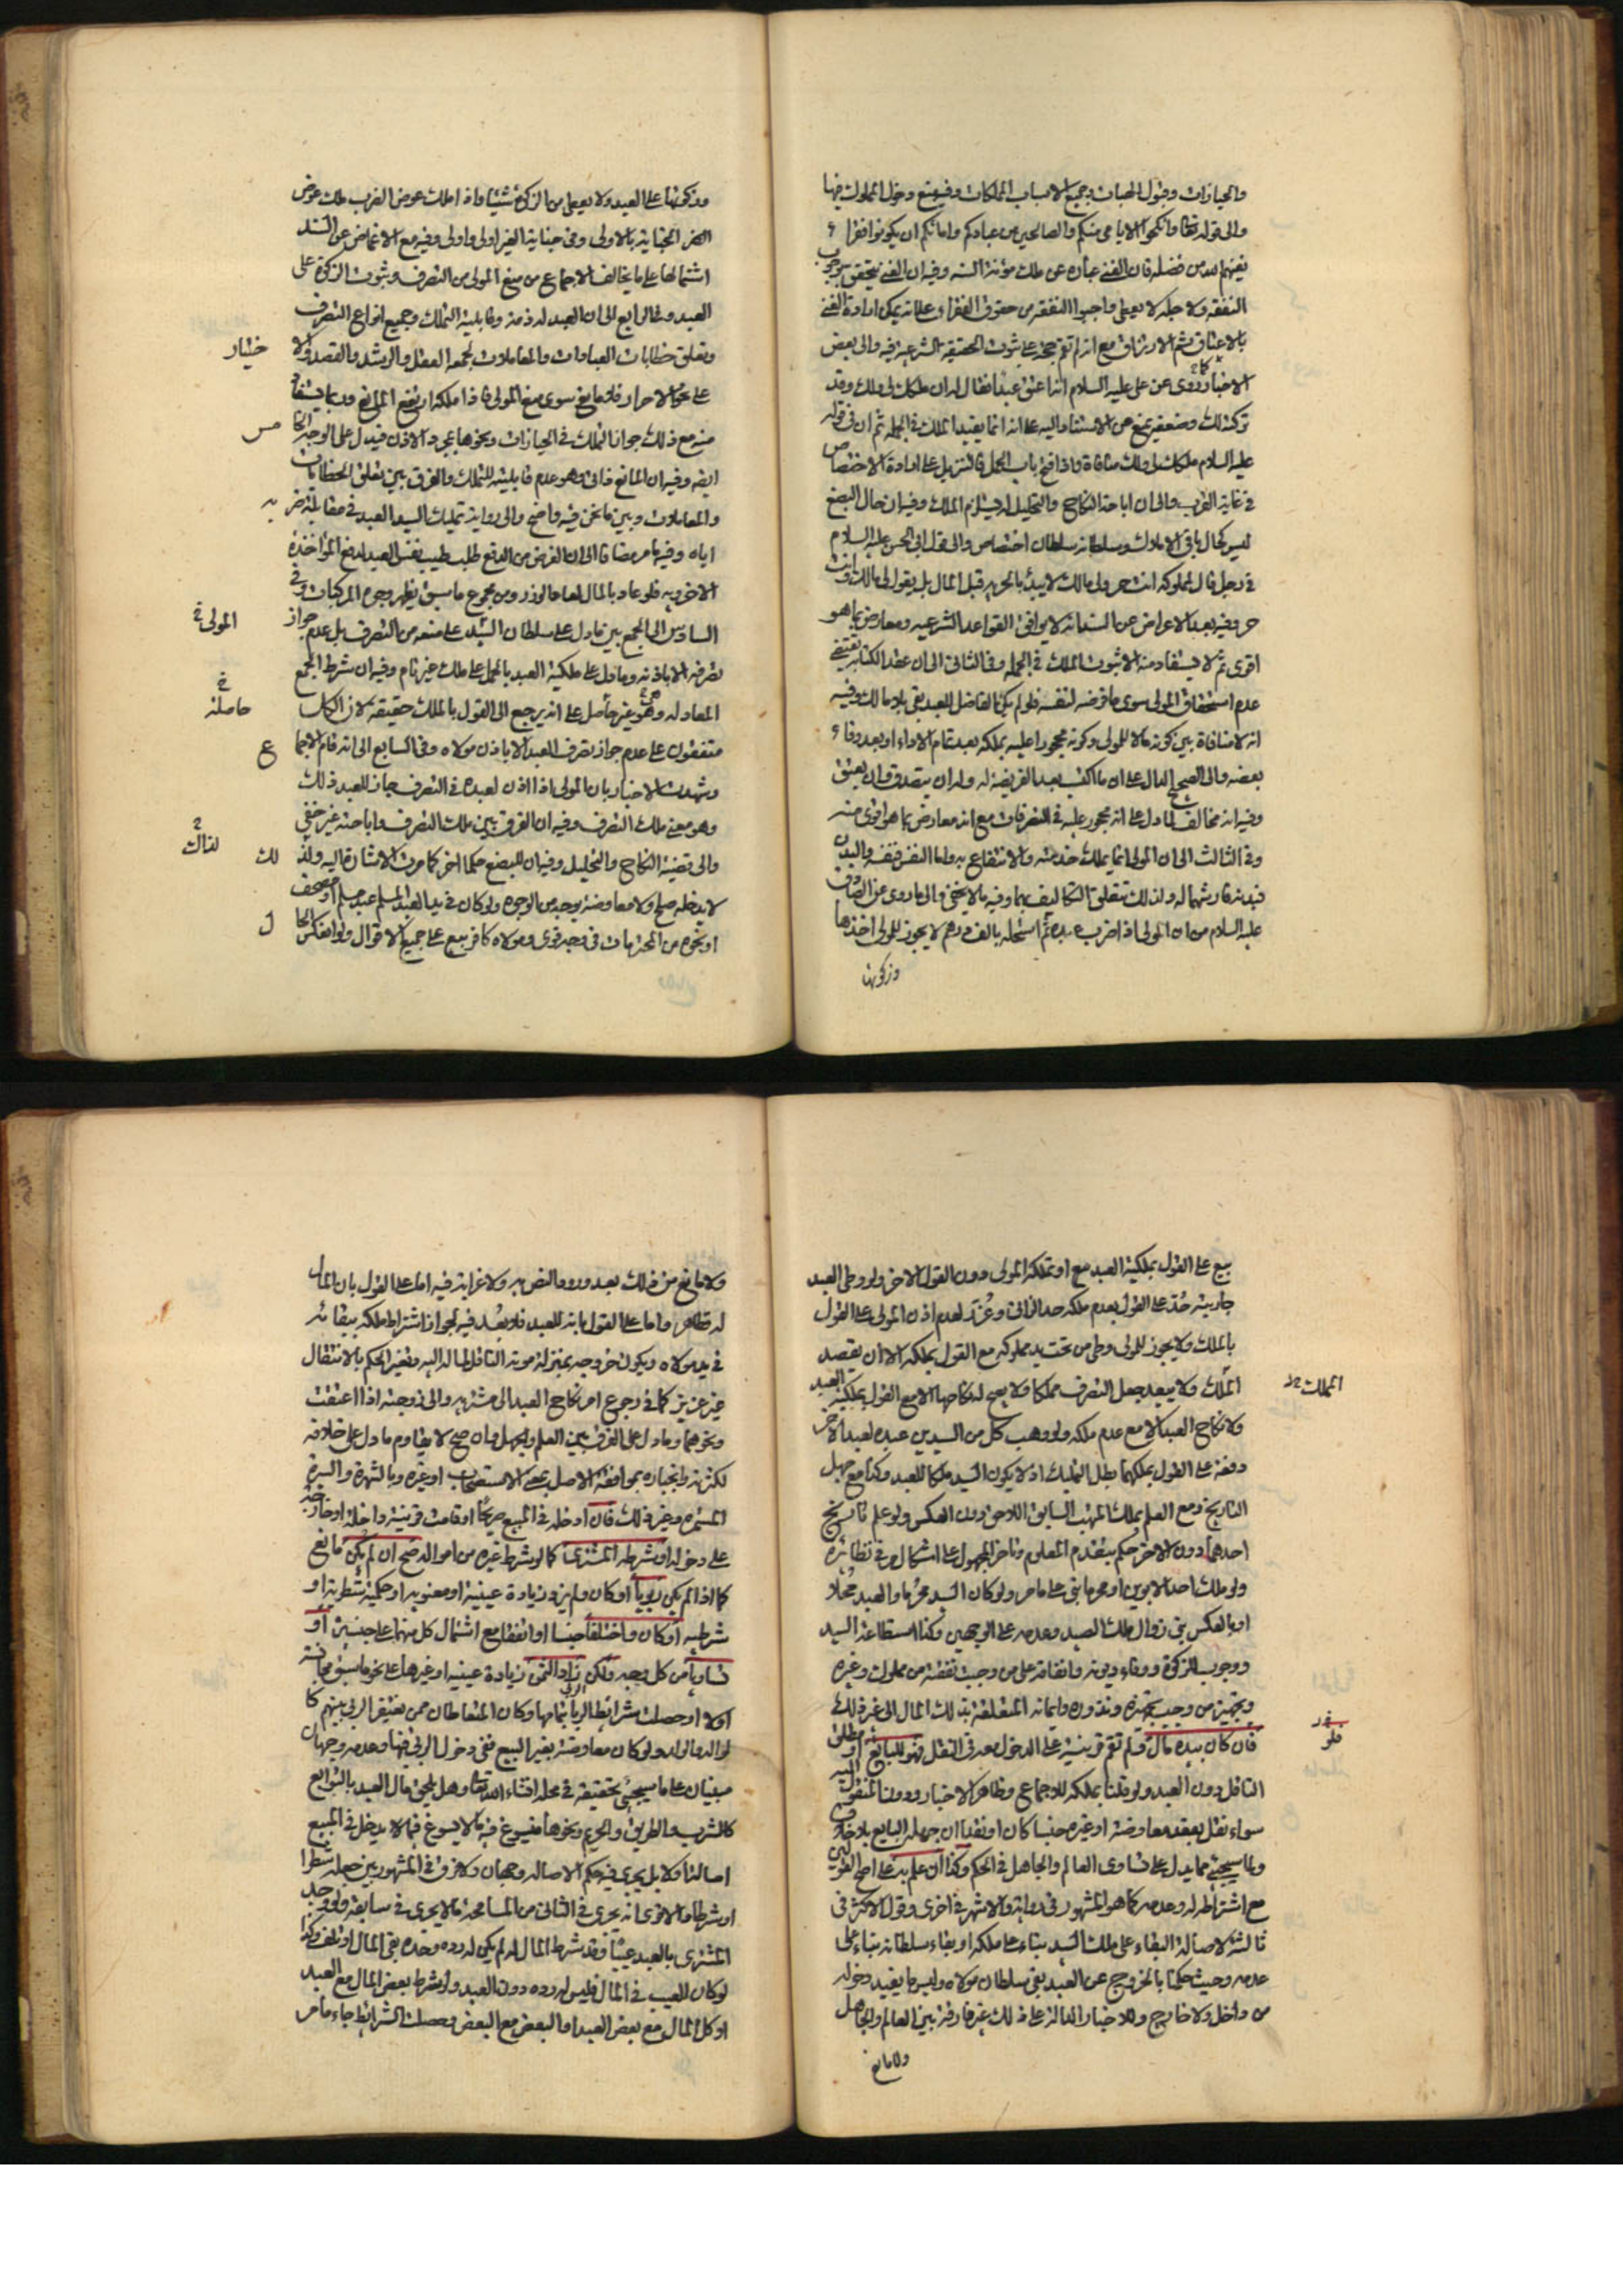 والحيازات وقبول الهبات وجميع الاسباب المملكات وفيه منع دخول المملوك فيها
والى قوله تعالى وانكحوا الايامى منكم والصالحين من عبادكم وامائكم ان يكونوا فقراء
يغنهم الله من فضله فان الغنى عبارة عن ملك مؤنة السنه وفيه ان الغنى يتحقق بوجوب
النفقه ولاجله لا يعطى واجبوا النفقه من حقوق الفقراء على انه يمكن ارادة الغنى
بالاعتاق ثم الارتزاق مع انه لم تقم حجة على ثبوت الحقيقه الشرعيه فيه والى بعض
الاخبار كما روى عن على عليه السلام انه اعتق عبدا فقال له ان ملكك لى ولك وقد
تركته لك وضعفه يمنع من الاستناد اليه على انه انما يفيد الملك فى الجمله ثم ان فى قوله
عليه السلام ملكك لى ولك منافاة واذا فتح باب الحمل فالتنزيل على ارادة الاختصاص
فى غاية القرب والى ان اباحة النكاح والتحليل له يستلزم الملك وفيه ان حال البضع
ليس كحال باقى الاملاك وسلطانه سلطان اختصاص والى قول ابى الحسن عليه السلام
فى رجل قال لمملوكه انت حر ولى مالك لا يبدأ بالحريه قبل المال بل يقول لى مالك وانت
حر وفيه بعد الاعراض عن السند انه لا يوافق القواعد الشرعيه ومعارض بما هو
اقوى ثم لا يستفاد منه الا ثبوت الملك فى الجمله وفى الثانى الى ان عقد الكتابه يقتضى
عدم استحقاق المولى سوى ما فرضه لنفسه فلو لم يكن الفاضل للعبد بقى بلا مالك وفيه
انه لا منافاة بين كونه مالا للمولى وكونه محجورا عليه يملكه بعد تمام الاداء او بعد وفاء
بعضه والى الصحيح الدال على ان ما اكتسب بعد الفريضة له وله ان يتصدق وان يعتق
وفيه انه مخالف لما دل على انه محجور عليه فى التصرفات مع انه معارض بما هو اقوى منه
وفى الثالث الى ان المولى انما يملك خدمته والانتفاع به واما النفس فنفسه والبدن
فبدنه فارشهما له ولذلك تتعلق التكاليف بهما وفيه ما لا يخفى والى ما روى عن الصادق
عليه السلام من ان المولى اذا ضرب عبده ثم استحله بالف درهم لا يجوز للمولى اخذها
وزكوتها
وزكوتها على العبد ولا يعطى من الزكوة شيئا فاذا ملك عوض الضرب ملك عوض
الجناية بالاولى وفى جناية الغير اولى واولى وفيه مع الاغماض عن السند
اشتمالها على ما يخالف الاجماع من منع المولى من التصرف وثبوت الزكوة على
العبد وفى الرابع الى ان العبد له ذمة وقابلية التملك وجميع انواع التصرف
وتعلق خطابات العبادات والمعاملات لجمعه العقل والرشد والقصد والا
ختيار
على نحو الاحرار فلا مانع سوى منع المولى فاذا ملكه ارتفع المانع وربما يستفاد
منه مع ذلك جواز التملك فى الحيازات ونحوها بمجرد الاذن فيدل على الوجه الخا
مس
ايضا وفيه ان المانع ذاتى وهو عدم قابليته للتملك والفرق بين تعلق الخطابات
والمعاملات وبين ما نحن فيه واضح والى رواية تمليك السيد العبد فى مقابلة ضر
به
اياه وفيه ما مر مضافا الى ان الغرض من الدفع طلب طيب نفس العبد لدفع المؤاخذة
الاخرويه فلو عاد بالمال لعاد الوزر ومن مجموع ما سبق يظهر وجوه المركبات وفى
السادس الى الجمع بين ما دل على سلطان السيد على منعه من التصرف بل عدم جواز
المولى
تصرفه الا باذنه وما دل على ملكية العبد بالحمل على ملك غير تام وفيه ان شرط الجمع
المعادله وهى غير حاصلة على انه يرجع الى القول بالملك حقيقة لان الكل
حاصلة
متفقون على عدم جواز تصرف العبد الا باذن مولاه وفى السابع الى انه قام الاجما
ع
وشهدت الاخبار بان المولى اذا اذن لعبده فى التصرف جاز للعبد ذلك
وهو معنى ملك التصرف وفيه ان الفرق بين ملك التصرف واباحته غير خفى
والى قضية النكاح والتحليل وفيه ان للبضع حكما اخر كما مرت الاشارة اليه ولذ
لك
لذلك
لا يدخله صلح ولا معاوضة بوجه من الوجوه ولو كان فى يد العبد المسلم عبد مسلم او مصحف
او نحوه من المحترمات فى وجه قوى ومولاه كافر بيع على جميع الاقوال ولو انعكس الحا
ل
بيع على القول بملكية العبد مع او تملكه المولى دون القول الاخر ولو وطى العبد
جاريته حد على القول بعدم ملكه حد الزانى وعزر لعدم اذن المولى على القول
بالملك ولا يجوز للمولى وطى من تحت يد مملوكه مع القول بملكه الا ان يقصد
التملك ولا يبعد جعل التصرف مملكا ولا يصح له نكاحها الا مع القول بملكية العبد
التملك
ولا نكاح العبد الا مع عدم ملكه ولو وهب كل من السيدين عبده لعبد الاخر
دفعة على القول بملكهما بطل التمليك اذ لا يكون السيد ملكا للعبد وكذا مع جهل
التاريخ ومع العلم يملك المتهب السابق اللاحق دون العكس ولو علم تاريخ
احدهما دون الاخر حكم بتقدم المعلوم وتاخر المجهول على اشكال وفى نظائره
ولو ملك احد الابوين او محرما بنى على ما مر ولو كان السيد محرما والعبد محلا
او بالعكس بنى زوال ملك الصيد وعدمه على الوجهين وكذا استطاعة السيد
ووجوب الزكوة ووفاء ديونه وانفاقه على من وجبت نفقته من مملوك وغيره
وتجهيز من وجب تجهيزه ونذوره وايمانه المتعلقة بذلك المال الى غير ذلك
فان كان بيده مال ولم تقم قرينة على الدخول معه فى النقل فهو للبايع او مطلق
فلو
الناقل دون العبد ولو قلنا بملكه للاجماع وظاهر الاخبار ودون المنقول اليه
سواء نقل بعقد معاوضة او غيره جنسا كان او نقدا ان جهله البايع بلا خلاف
ولما سيجئ مما يدل على تساوى العالم والجاهل فى الحكم وكذا ان علم به على اصح القولين
مع اشتراطه له وعدمه كما هو المشهور فى رواية والاشهر فى اخرى وقول الاكثر فى
ثالثة لاصالة البقاء على ملك السيد بناء على ملكه او بقاء سلطانه بناء على
عدمه وحيث حكمنا بالخروج عن العبد بقى سلطان مولاه وليس ما يفيد دخوله
من داخل ولا خارج وللاخبار الدالة على ذلك غير فارقة بين العالم والجاهل
ولا مانع
ولا مانع من ذلك بعد ورود النص به ولا غرابة فيه اما على القول بان المال
له فظاهر واما على القول بانه للعبد فلا بعد فيه لجواز اشتراط ملكه ببقائه
فى يد مولاه ويكون خروجه بمنزلة موته الناقل لماله اليه وتغير الحكم بالانتقال
غير عزيز كما فى رجوع امر نكاح العبد الى مشتريه والى زوجته اذا اعتقت
ونحوهما وما دل على الفرق بين العلم والجهل وان صح لا يقاوم ما دل على خلافه
لكثرته وانجباره بموافقة الاصل بمعنى الاستصحاب او غيره وبالشهرة والسيرة
المستمرة وغير ذلك فان ادخله فى المبيع صريحا او قامت قرينة داخلة او خارجة
على دخوله او شرطه المشترى كما لو شرط غيره من امواله صح ان لم يكن مانع
كما اذا لم يكن ربويا او كان ولم يزد زيادة عينية او معنويه او حكمية شطرية او
شرطيه او كان واختلفا جنسا او اتفقا مع اشتمال كل منهما على جنسين او
تساويا من كل وجه ولكن زاد الثمن زيادة عينيه او غيرها على نحو ما سبق مجانسة
اولا او حصلت شرائط الربا بتمامها وكان المتعاطان ممن يغتفر الربى بينهم كا
لوالد والولد ولو كان معاوضة بغير البيع ففى دخول الربى فيها وعدمه وجهان
مبنيان على ما سيجئ تحقيقه فى محله انشاء الله تعالى وهل يلحق مال العبد بالتوابع
كالشرب والطريق والحريم ونحوها فيسوغ فيه ما لا يسوغ فيما لا يدخل فى المبيع
اصالة او لا بل يجرى فيه حكم الاصاله وجهان ولا فرق فى المشهور بين جعله شطرا
او شرطا والاقوى انه يجرى فى الثانى من المسامحة ما لا يجرى فى سابقه ولو وجد
المشترى بالعبد عيبا وقد شرط المال له لم يكن له رده وحده بقى المال او تلف وكذا
لو كان العيب فى المال فليس له رده دون العبد ولو شرط بعض المال مع العبد
او كل المال مع بعض العبد او البعض مع البعض وحصلت الشرائط جاء ما مر